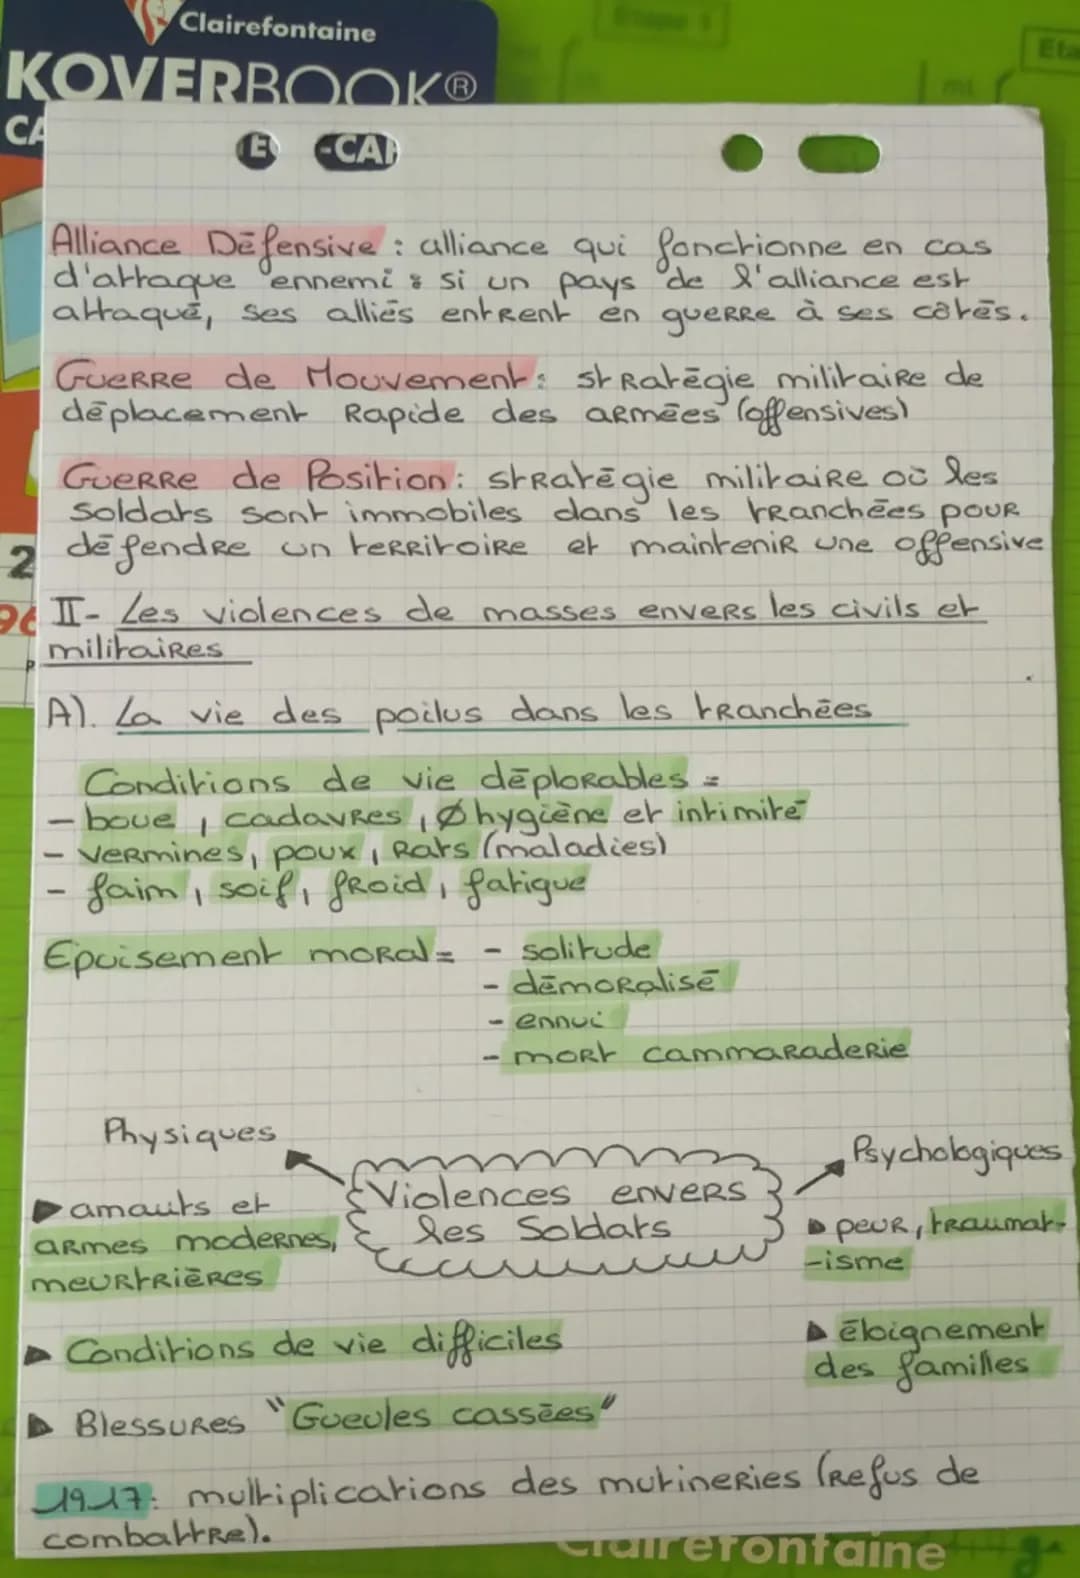 Clairefontaine
KOVERBOOK®
CA
-CAH
Alliance Défensive : alliance qui fonctionne en cas
d'attaque ennemi : si un pays de l'alliance est
attaqué, ses alliés entrent en guerre à ses côtés.
Guerre de Mouvement : stratégie militaire de
déplacement Rapide des armées (offensives)
Guerre de Position : stratégie militaire où les
soldats sont immobiles dans les tranchées pour
défendre un territoire et maintenir une offensive
2
96
II- Les violences de masses envers les civils et
militaires
A). La vie des poilus dans les tranchées
Conditions de vie déplorables =
- boue, cadavres, Ø hygiène et intimité
- vermines, poux, Rats (maladies)
- faim, soif, froid, fatigue
Epuisement moral = - solitude
- démoralisé
- ennui
- mort cammaraderie
Physiques
Psychologiques
Violences envers
les Soldats
▶ amauts et
armes modernes,
meurtrières
▶ peur, traumat-
-isme
▶ Conditions de vie difficiles
▶ éloignement
des familles
▶ Blessures "Gueules cassées"
1917: multiplications des mutineries (refus de
combattre).
Clairefontaine